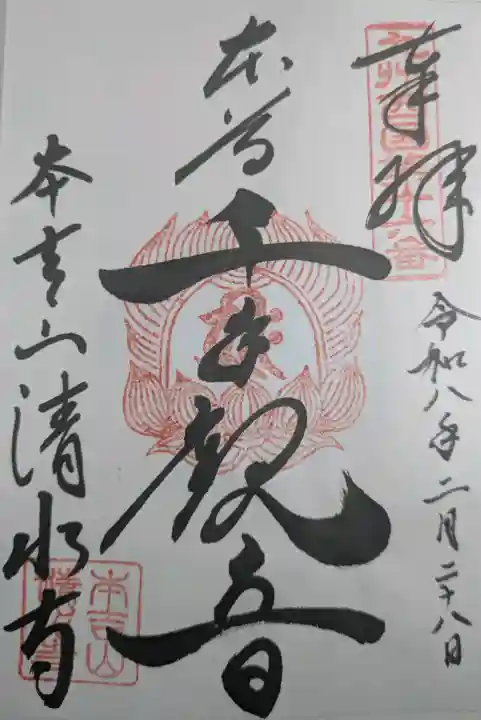 奉拝
令和八年二月二十八日
本尊
千手観音
本吉山清水寺
本吉山